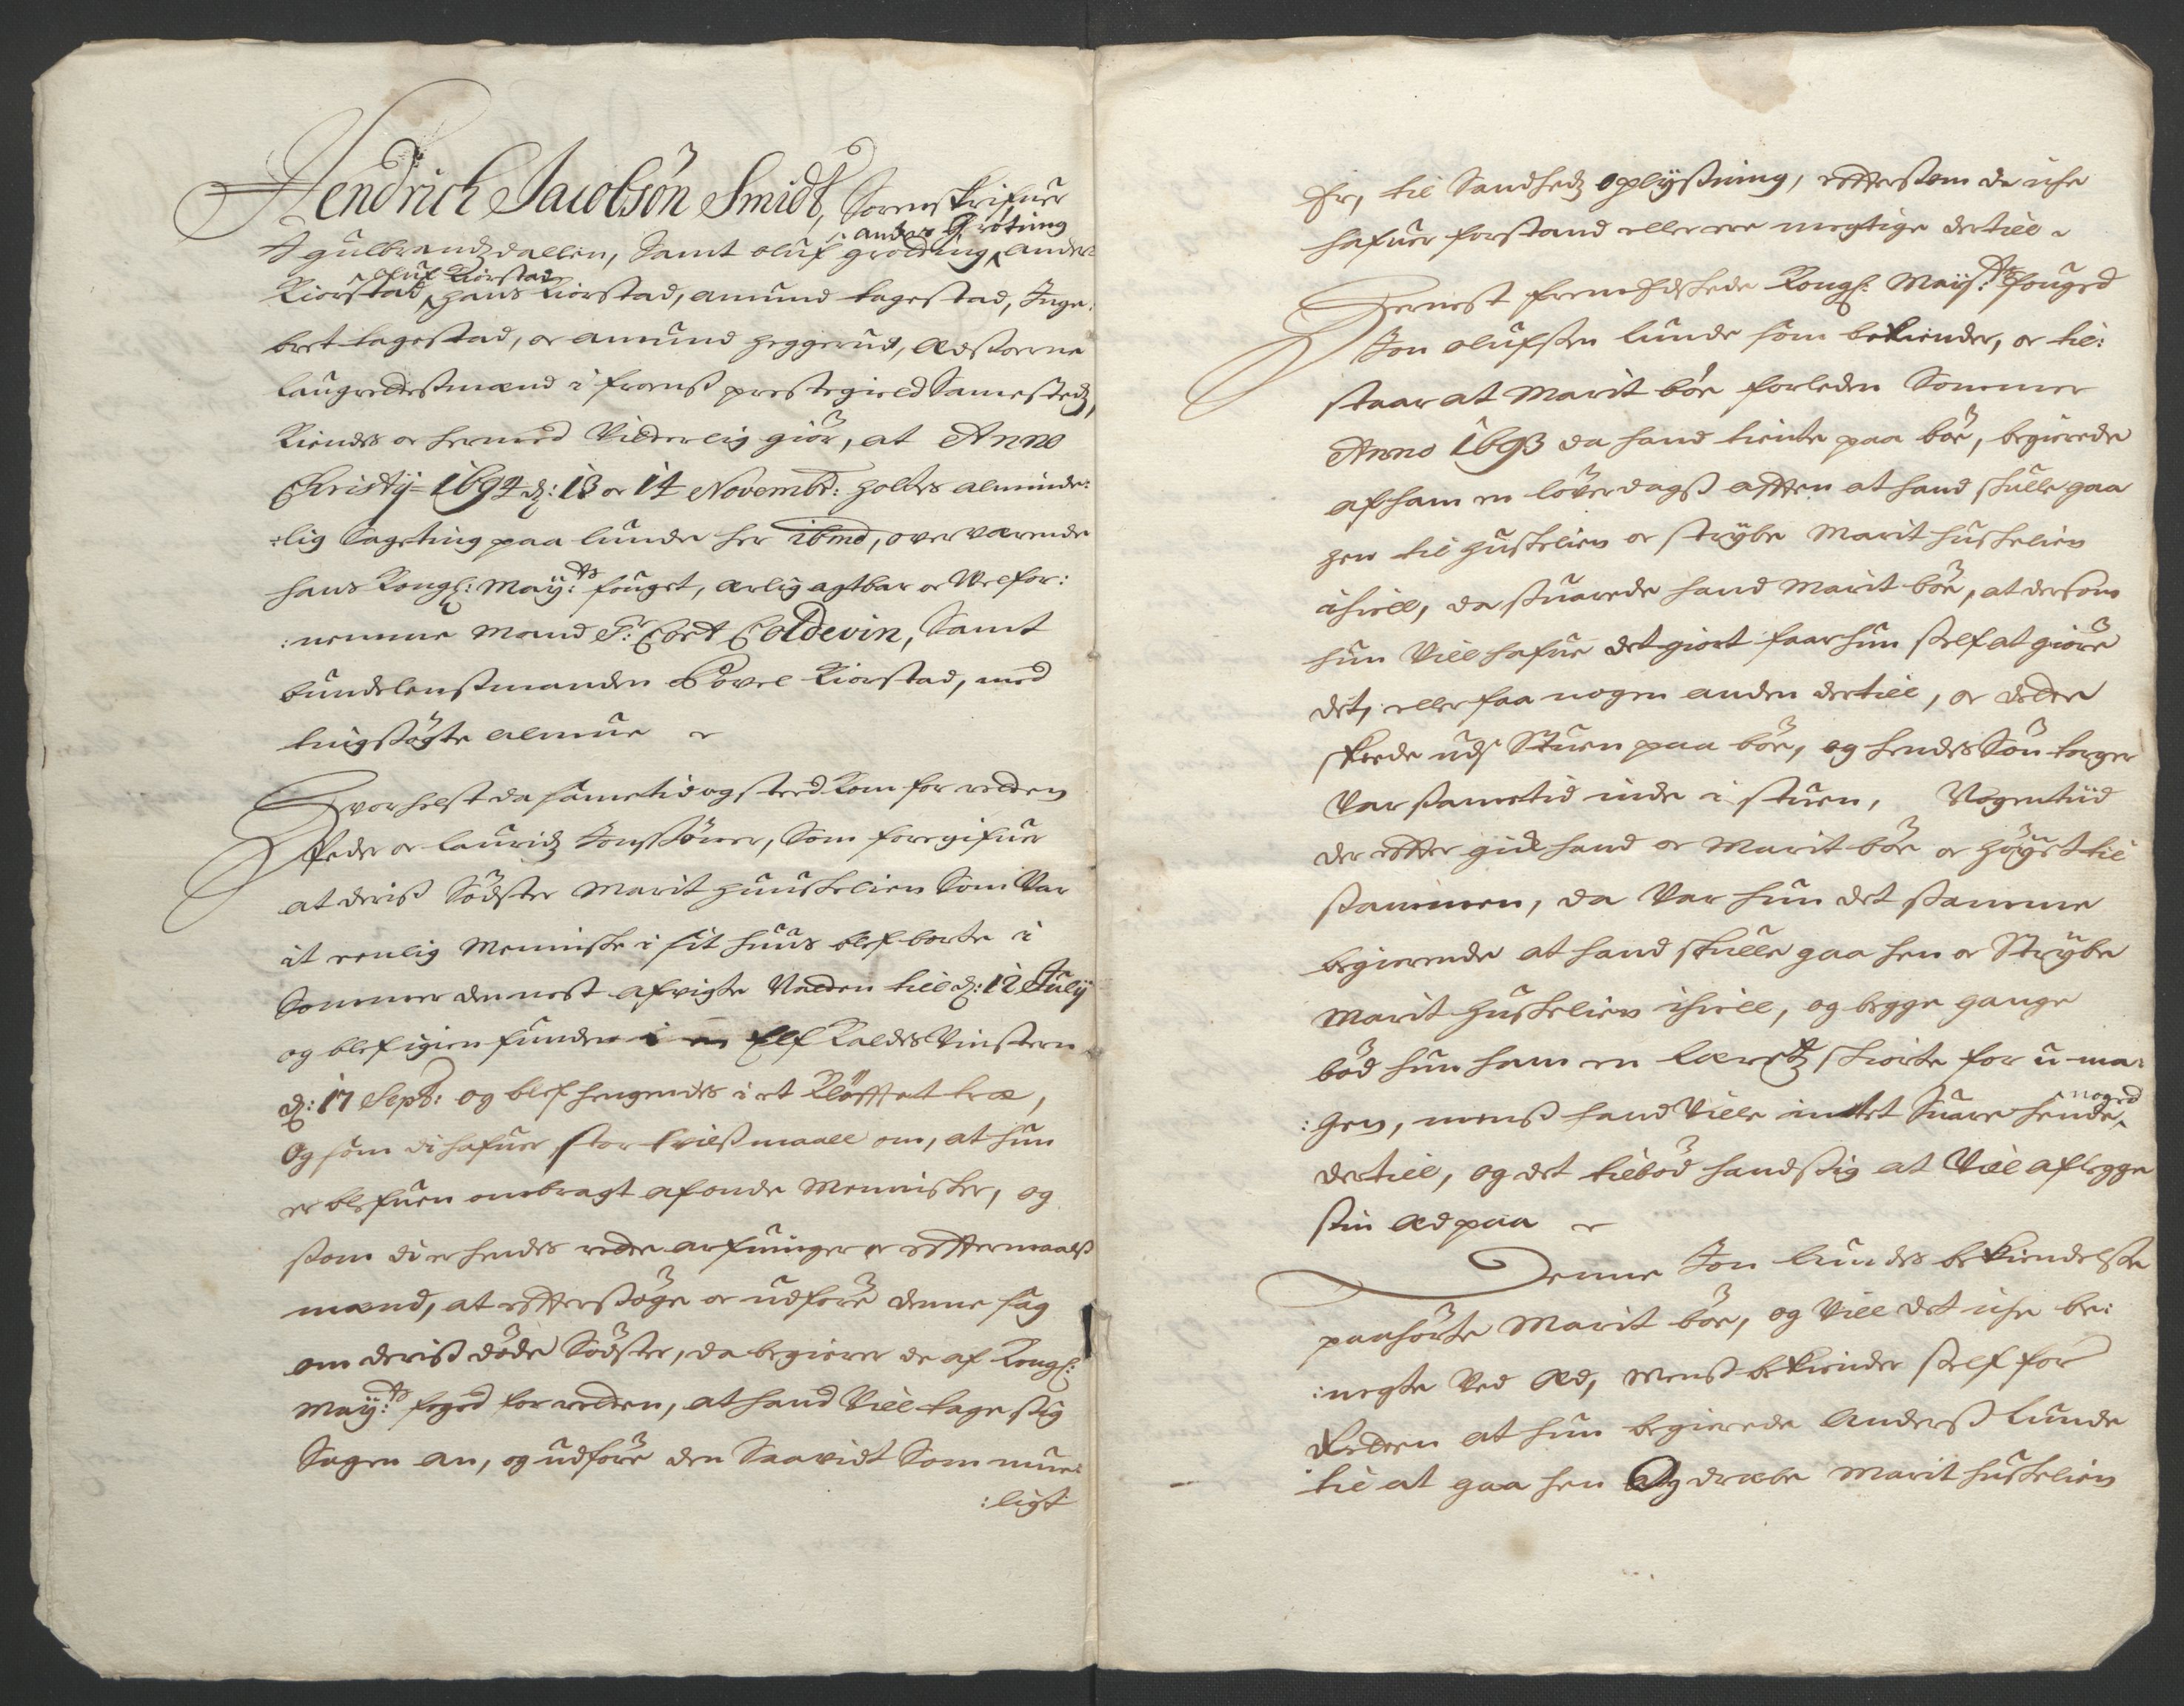 Hendrich Jacobsön Smidt, Sorenskrifuer
J gulbrandzdallen, Samt oluf grötting, ander Gröting, ander
Kiorstad, oluf Kiorstad, hans Kiorstad, amund tagestad, Inge:
bret tagestad, oc amund heggerud, Edsorne
laugrettesmænd i frons prestegield Samesteds,
Kiendes oc hermed Vitterlig giör, at Anno
Christij 1694 d: 13 oc 14 Novembr: holtes alminde:
:lig Sageting paa lunde her ibmd, overværende
hans Kongl: May:ts fougt, ærlig agtbar oc Velfor:
:nemme Mand Sr: Cort Coldevin, Samt
bundelensmanden Povel Kiorstad, med
tingsögte almue
Hvorhelst da sametid og sted Kom for retten
Peder oc lauridz Jonssöner, Som foregifuer
at deris Södster Marit huuskelien Som Var
it eenlig Menniske i sit huus blef borte i
Sommer dennest afvigte Natten till d: 12 July
og blef igien funden i en Elf Kaldes Vinstern
d: 17 Sept: og blef hengendes i et Klöfftet træ,
Og som di hafuer stor tvilsmaall om, at hun
er blefuen ombragt af onde Mennisker, og
som di er hendes rette arfuinger oc efftermaals
mænd, at efftersöge oc udföre denne sag
om deris döde Södster, da begierer de af Kongl:
May:ts foged for retten, at hand Vill tage sig
Sagen an, og udföre den Saavidt Som mue:
:ligt
Er, til Sandheds oplysning, effterson de icke
hafuer forstand eller ere megtige dertill
Dernest fremEskede Kongl: Mays:ts fouged
Jon olufsen lunde som bekiender, oc til:
staar at Marit böe forleden Sommer
Anno 1693 da hand tiente paa böe, begierede
af ham en löverdags afften at hand skulle gaa
hen til huskelien oc strybe Marit huskelien
ihiell, da suarede hand Marit böe, at dersom
hun Vill hafue det giort faar hun self at giöre
det, eller faa nogen anden dertill, oc dette
skede udj Stuen paa böe, og hendes Sön torger
Var sametid inde i stuen, Nogentiid
der effter gik hand oc Marit böe oc höyet til
sammen, da Var hun det samme
begierende at hand skulle gaa hen oc Strybe
Marit huskelien ihiell, og begge gange
böd hun ham en Lærretz skiorte for uma:
:gen, mens hand Ville intet Suare hende noged
dertill, og det tilböd hand sig at Vill aflegge
sin æd paa
Denne Jon lundes bekiendelse
paahörte Marit böe, og Vill det icke be:
:negte Ved Æd, mens bekiender self for
Retten at hun begierede Anders Lunde
til at gaa hen Og dræbe Marit huskelien